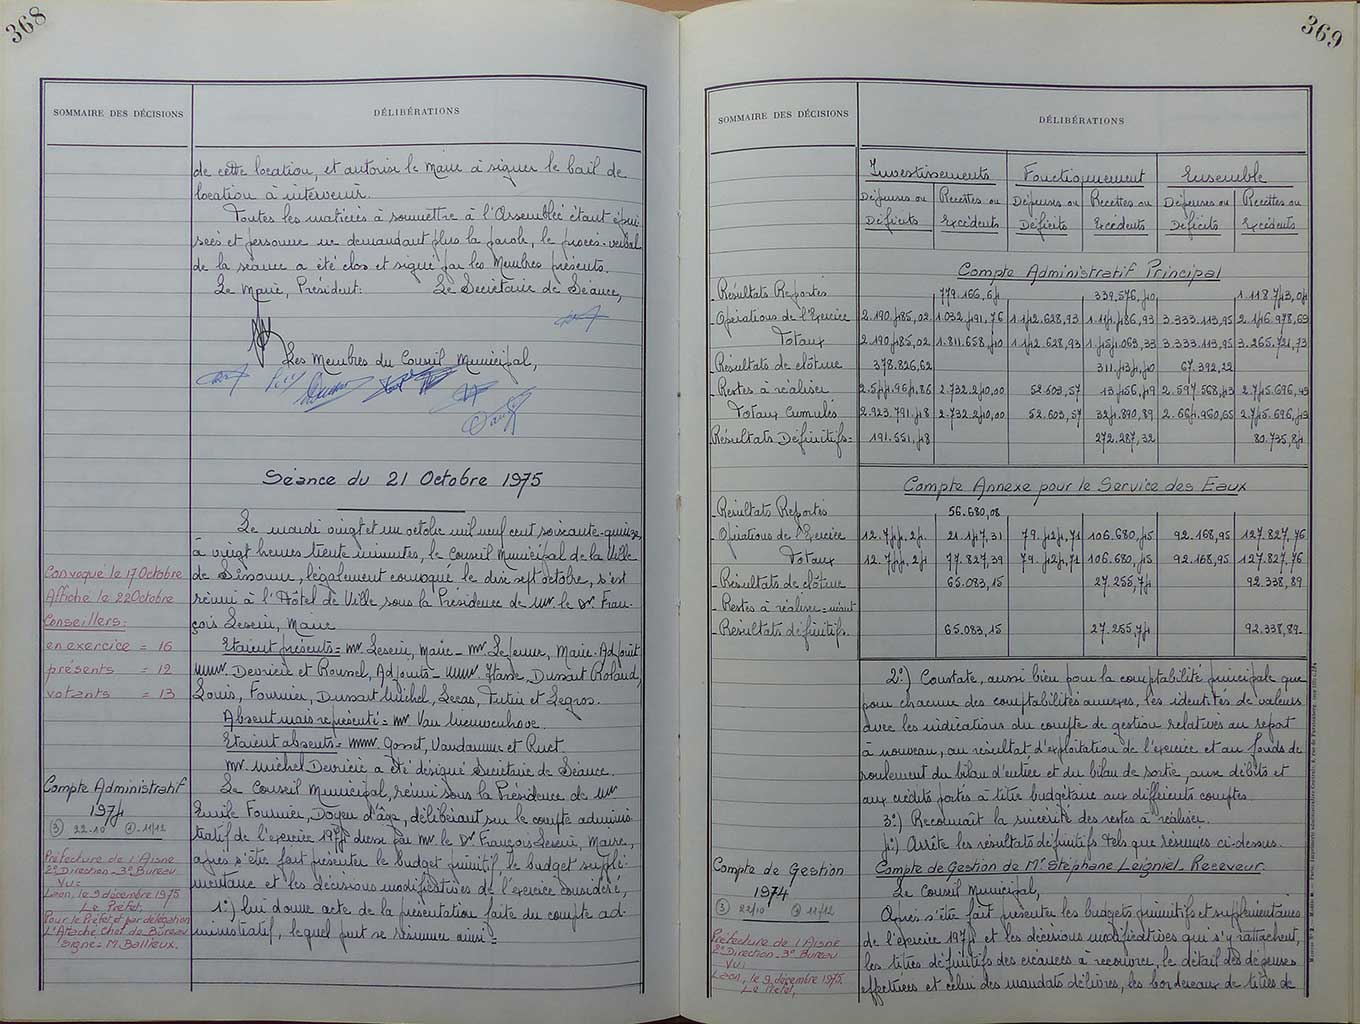 368
SOMMAIRE DES DÉCISIONS
DÉLIBÉRATIONS
de cette location, et autorise le Maire à signer le bail de
location à intervenir.
Toutes les matières à soumettre à l'Assemblée étant épui-
sées et personne ne demandant plus la parole, le procès-verbal
de la séance a été clos et signé par les Membres présents.
Le Maire, Président: Le Secrétaire de Séance,
Les Membres du Conseil Municipal,
Séance du 21 Octobre 1975
Le mardi vingt et un octobre mil neuf cent soixante-quinze,
à vingt heures trente minutes, le Conseil Municipal de la Ville
de Sissonne, légalement convoqué le dix sept octobre, s'est
réuni à l'Hôtel de Ville sous la Présidence de Mr le Dr Fran-
çois Leseur, Maire
Convoqué le 17 Octobre
Affiché le 22 Octobre
Conseillers:
en exercice = 16
présents = 12
votants = 13
Etaient présents = Mr Leseur, Maire - Mr Lejeune, Maire-Adjoint
MMrs Devrière et Roussel, Adjoints - MMrs Hasse, Dussart Roland,
Louis, Fournier, Dussart Michel, Lecas, Tutin et Legros.
Absent mais représenté = Mr Van Nieuwenhove.
Etaient absents = MMrs Gosset, Vandamme et Ruet.
Mr Michel Devrière a été désigné Secrétaire de Séance.
Compte Administratif
1974
(3) 22-10 (4) 11/12
Préfecture de l'Aisne
2° Direction - 3° Bureau
Vu:
Laon, le 9 décembre 1975
Le Préfet,
Pour le Préfet et par délégation
L'Attaché Chef de Bureau
signé = M. Ballieux.
Le Conseil Municipal, réuni sous la Présidence de Mr
Emile Fournier, Doyen d'âge, délibérant sur le compte adminis-
tratif de l'exercice 1974 dressé par Mr le Dr François Leseur, Maire,
après s'être fait présenter le budget primitif, le budget supplé-
mentaire et les décisions modificatives de l'exercice considéré,
1°) lui donne acte de la présentation faite du compte ad-
ministratif, lequel peut se résumer ainsi =
369
SOMMAIRE DES DÉCISIONS
DÉLIBÉRATIONS
Investissements Fonctionnement Ensemble
Dépenses ou Recettes ou Dépenses ou Recettes ou Dépenses ou Recettes ou
Déficits Excédents Déficits Excédents Déficits Excédents
Compte Administratif Principal
Résultats Reportés 779.166,64 339.576,40 1.118.743,04
Opérations de l'Exercice 2.190.485,02 1.032.491,76 1.142.628,93 1.114.486,93 3.333.113,95 2.146.978,69
Totaux 2.190.485,02 1.811.658,40 1.142.628,93 1.454.063,33 3.333.113,95 3.265.721,73
Résultats de clôture 378.826,62 311.434,40 67.392,22
Restes à réaliser 2.544.964,86 2.732.240,00 52.603,57 13.456,49 2.597.568,43 2.745.696,49
Totaux Cumulés 2.923.791,48 2.732.240,00 52.603,57 324.890,89 2.664.960,65 2.745.696,49
Résultats Définitifs = 191.551,48 272.287,32 80.735,84
Compte Annexe pour le Service des Eaux
Résultats Reportés 56.680,08
Opérations de l'Exercice 12.744,24 21.147,31 79.424,71 106.680,45 92.168,95 127.827,76
Totaux 12.744,24 77.827,39 79.424,71 106.680,45 92.168,95 127.827,76
Résultats de clôture 65.083,15 27.255,74 92.338,89
Restes à réaliser = néant
Résultats définitifs. 65.083,15 27.255,74 92.338,89
2°) Constate, aussi bien pour la comptabilité principale que
pour chacune des comptabilités annexes, les identités de valeurs
avec les indications du compte de gestion relatives au report
à nouveau, au résultat d'exploitation de l'exercice et au fonds de
roulement du bilan d'entrée et du bilan de sortie, aux débits et
aux crédits portés à titre budgétaire aux différents comptes.
3°) Reconnaît la sincérité des restes à réaliser.
4°) Arrête les résultats définitifs tels que résumés ci-dessus.
Compte de Gestion
1974
(3) 22/10 (4) 11/12
Préfecture de l'Aisne
2° Direction - 3° Bureau
Vu:
Laon, le 9 décembre 1975.
Le Préfet,
Compte de Gestion de Mr Stéphane Leigniel - Receveur.
Le Conseil Municipal,
Après s'être fait présenter les budgets primitifs et supplémentaires
de l'exercice 1974 et les décisions modificatives qui s'y rattachent,
les titres définitifs des créances à recouvrer, le détail des dépenses
effectuées et celui des mandats délivrés, les bordereaux de titres de